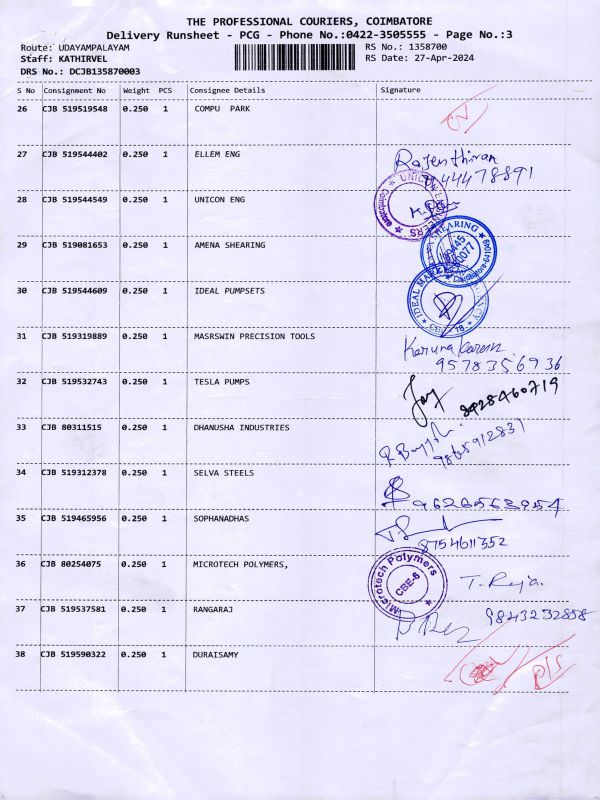 THE PROFESSIONAL COURIERS, COIMBATORE
Delivery Runsheet - PCG - Phone No.:0422-3505555 - Page No.:3
Route: UDAYAMPALAYAM RS No.: 1358700
Staff: KATHIRVEL RS Date: 27-Apr-2024
DRS No.: DCJB135870003
S No Consignment No Weight PCS Consignee Details Signature
26 CJB 519519548 0.250 1 COMPU PARK
27 CJB 519544402 0.250 1 ELLEM ENG Rajenthiran
44478891
28 CJB 519544549 0.250 1 UNICON ENG
29 CJB 519081653 0.250 1 AMENA SHEARING
30 CJB 519544609 0.250 1 IDEAL PUMPSETS
31 CJB 519319889 0.250 1 MASRSWIN PRECISION TOOLS
9578356936
32 CJB 519532743 0.250 1 TESLA PUMPS Jay 8928460719
33 CJB 80311515 0.250 1 DHANUSHA INDUSTRIES
9865912831
34 CJB 519312378 0.250 1 SELVA STEELS
35 CJB 519465956 0.250 1 SOPHANADHAS
8754611352
36 CJB 80254075 0.250 1 MICROTECH POLYMERS, Microtech Polymers CBE-6 T. Raja.
37 CJB 519537581 0.250 1 RANGARAJ 9843232858
38 CJB 519590322 0.250 1 DURAISAMY